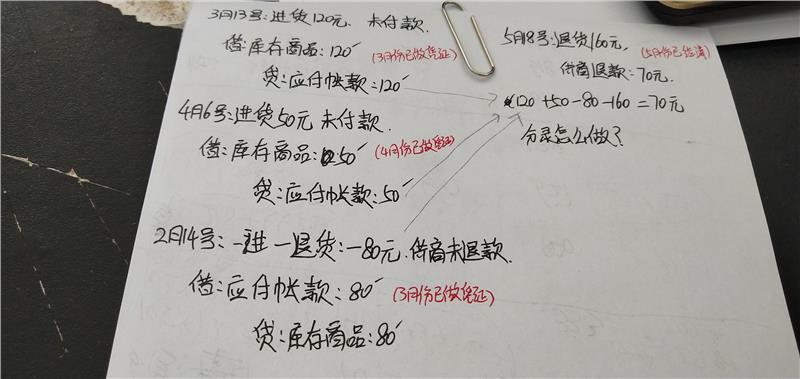 3月13号:进货120元、未付款.
借:库存商品:120 (3月份已做凭证)
贷:应付帐款:120
4月6号:进货50元 未付款.
借:库存商品:50 (4月份已做凭证)
贷:应付帐款:50
2月14号:一进一退货:-80元.供商未退款.
借:应付帐款:80 (3月份已做凭证)
贷:库存商品:80
5月18号:退货160元, (5月份已结清)
供商退款:70元.
120+50-80-160=70元
分录怎么做?